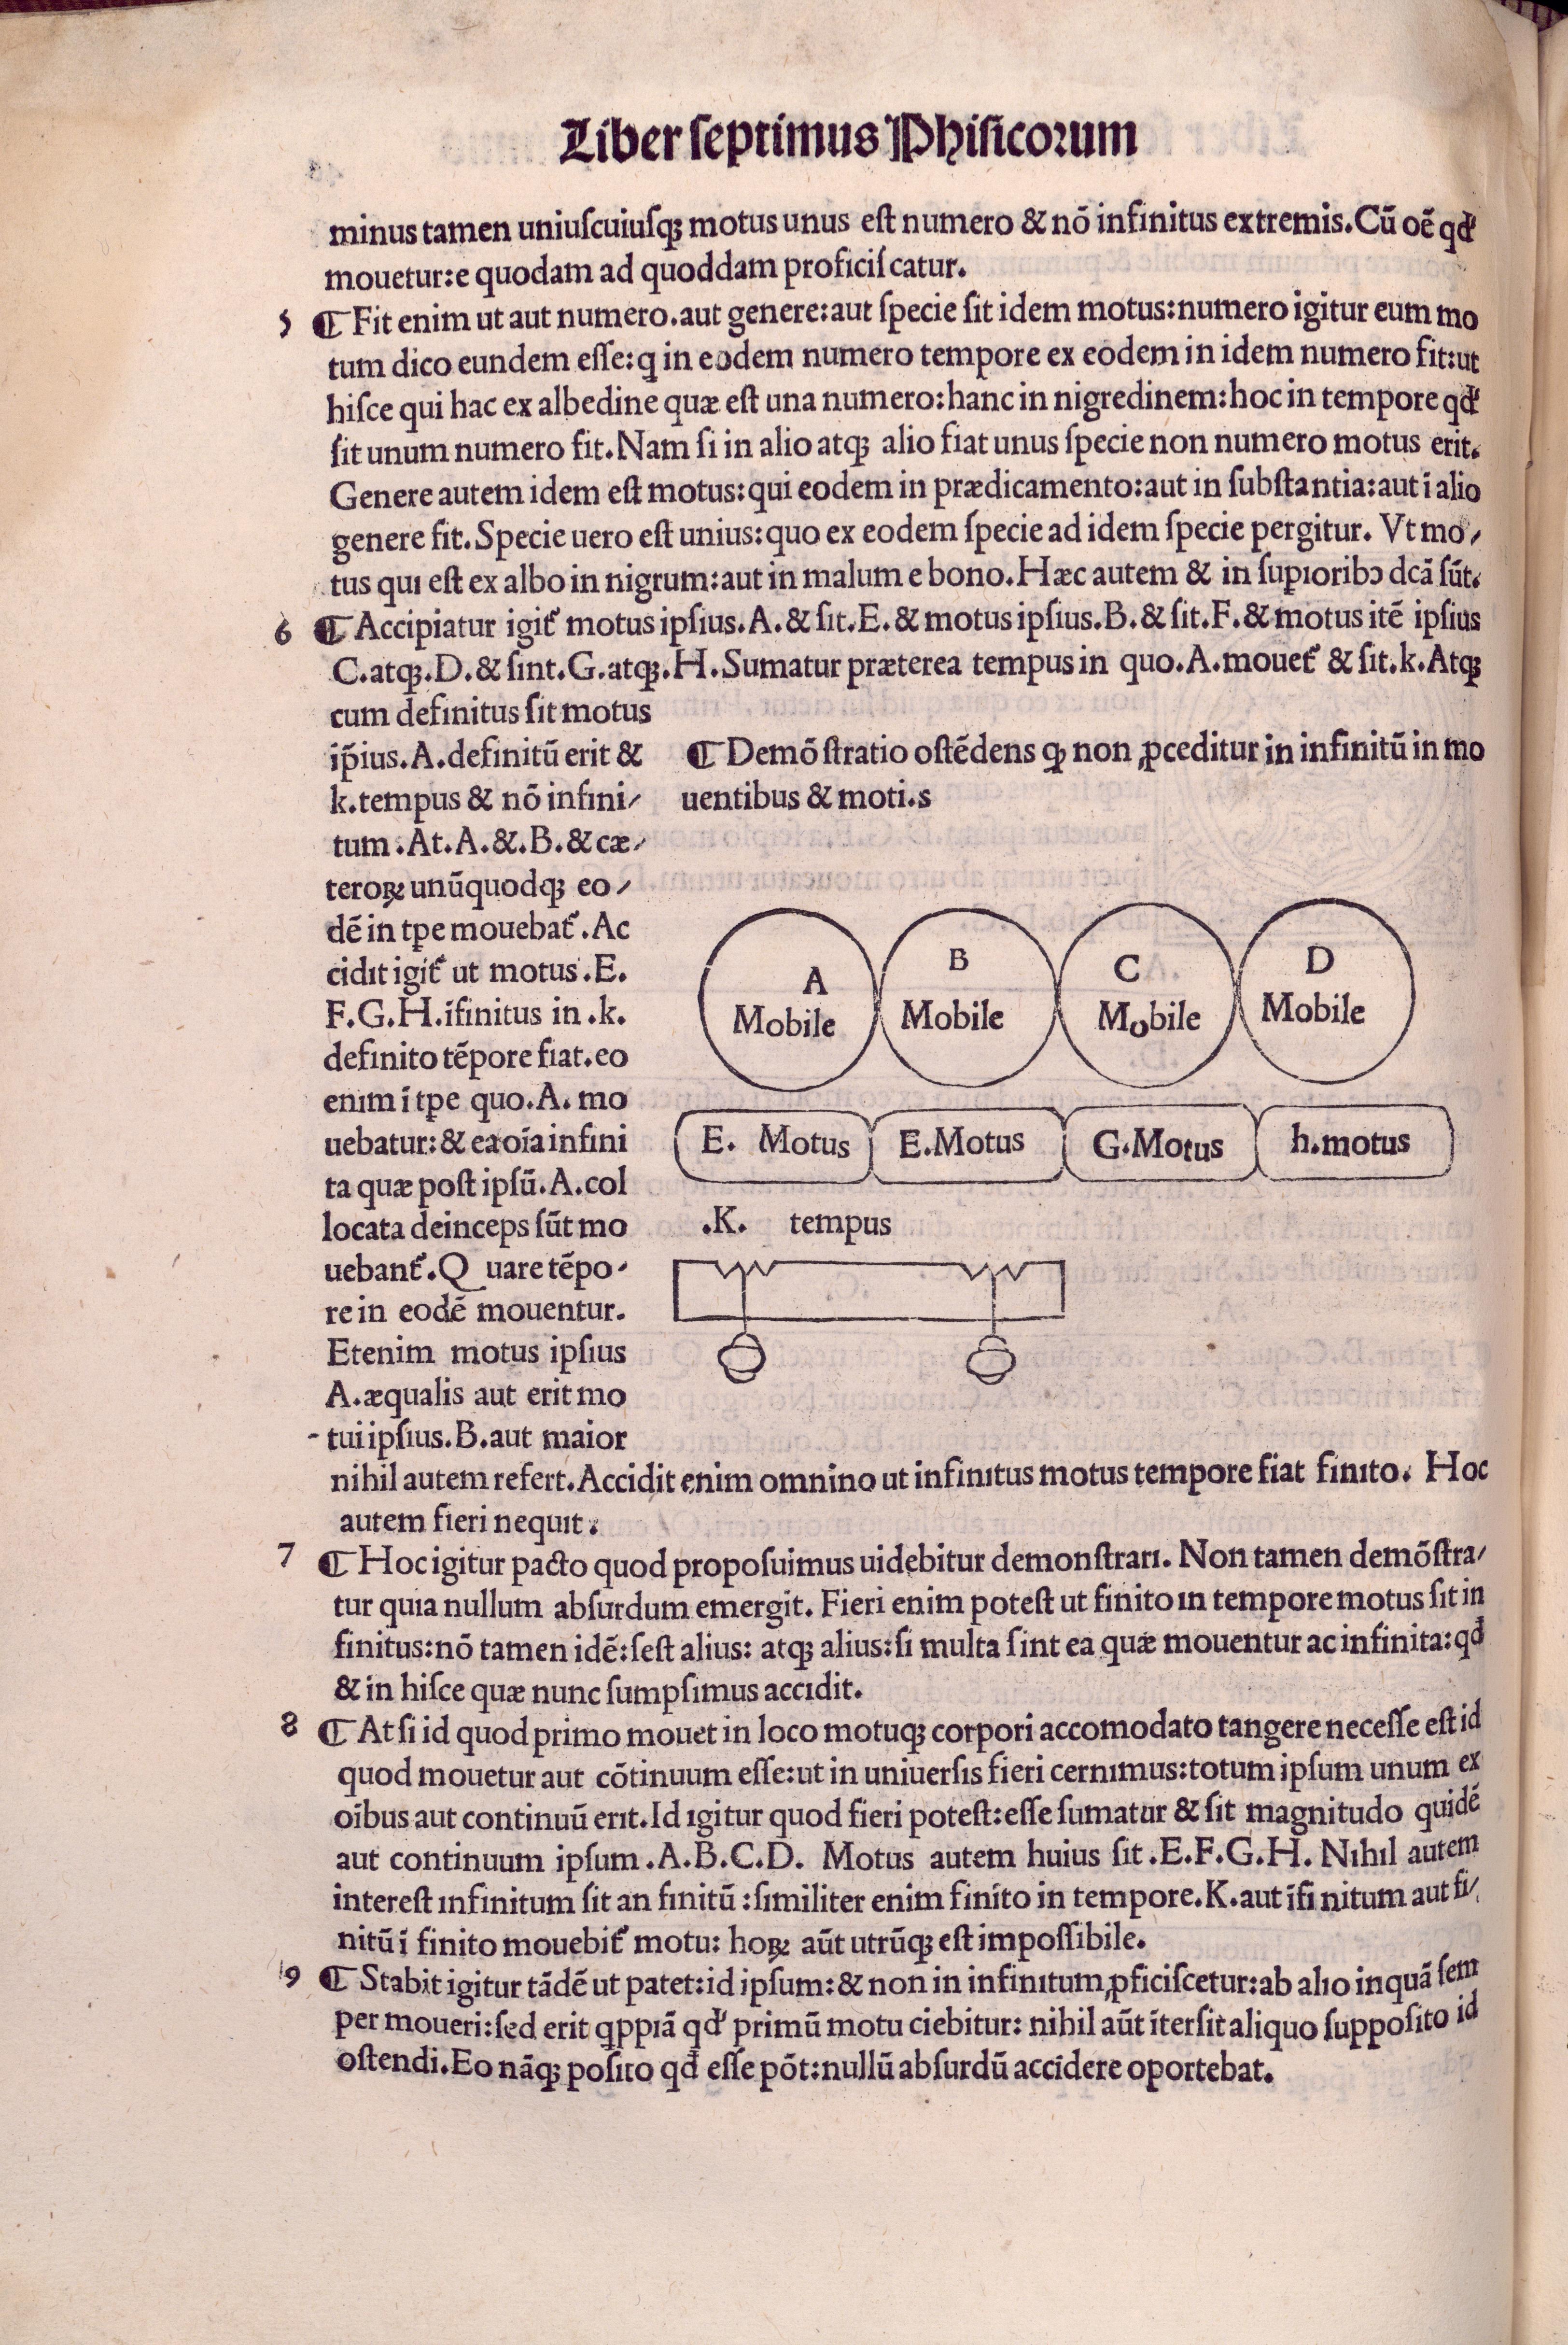 Liber ſeptimus Phiſicoꝛum
minus tamen uniuſcuiuſqꝫ motus unus eſt numero & nō infinitus extremis.Cū oē qđ
mouetur:e quodam ad quoddam proficiſcatur.
5 ¶ Fit enim ut aut numero.aut genere:aut ſpecie ſit idem motus:numero igitur eum mo
tum dico eundem eſſe:q in eodem numero tempore ex eodem in idem numero fit:ut
hiſce qui hac ex albedine quæ eſt una numero:hanc in nigredinem:hoc in tempore qđ
ſit unum numero fit.Nam ſi in alio atqꝫ alio fiat unus ſpecie non numero motus erit.
Genere autem idem eſt motus:qui eodem in prædicamento:aut in ſubſtantia:aut ī alio
genere fit.Specie uero eſt unius:quo ex eodem ſpecie ad idem ſpecie pergitur. Vt mo⸗
tus qui eſt ex albo in nigrum:aut in malum e bono.Hæc autem & in ſuꝑioribꝰ dcā ſūt.
6 ¶ Accipiatur igit᷑ motus ipſius.A.& ſit.E.& motus ipſius.B.& ſit.F.& motus itē ipſius
C.atqꝫ.D.& ſint.G.atqꝫ.H.Sumatur præterea tempus in quo.A.mouet᷑ & ſit.k.Atqꝫ
cum definitus ſit motus
ip̄ius.A.definitū erit &
k.tempus & nō infini⸗
tum.At.A.&.B.& cæ⸗
teroꝝ unūquodqꝫ eo⸗
dē in tꝑe mouebat᷑.Ac
cidit igit᷑ ut motus.E.
F.G.H.īfinitus in.k.
definito tēpore fiat.eo
enim ī tꝑe quo.A.mo
uebatur:& ea oīa infini
ta quæ poſt ipſū.A.col
locata deinceps ſūt mo
uebant᷑.Q uare tēpo⸗
re in eodē mouentur.
Etenim motus ipſius
A.æqualis aut erit mo
tui ipſius.B.aut maior
¶ Demōſtratio oſtēdens qꝫ non ꝓceditur in infinitū in mo
uentibus & moti.s
A B C D
Mobile Mobile Mobile Mobile
E. Motus E.Motus G.Motus h.motus
.K. tempus
nihil autem refert.Accidit enim omnino ut infinitus motus tempore fiat finito. Hoc
autem fieri nequit.
7 ¶ Hoc igitur pacto quod propoſuimus uidebitur demonſtrari. Non tamen demōſtra⸗
tur quia nullum abſurdum emergit. Fieri enim poteſt ut finito in tempore motus ſit in
finitus:nō tamen idē:ſeſt alius: atqꝫ alius:ſi multa ſint ea quæ mouentur ac infinita:qđ
& in hiſce quæ nunc ſumpſimus accidit.
8 ¶ At ſi id quod primo mouet in loco motuqꝫ corpori accomodato tangere neceſſe eſt id
quod mouetur aut cōtinuum eſſe:ut in uniuerſis fieri cernimus:totum ipſum unum ex
oībus aut continuū erit.Id igitur quod fieri poteſt:eſſe ſumatur & ſit magnitudo quidē
aut continuum ipſum.A.B.C.D. Motus autem huius ſit.E.F.G.H. Nihil autem
intereſt infinitum ſit an finitū:ſimiliter enim finito in tempore.K.aut īfi nitum aut fi⸗
nitū ī finito mouebit᷑ motu: hoꝝ aūt utrūqꝫ eſt impoſſibile.
9 ¶ Stabit igitur tādē ut patet:id ipſum:& non in infinitum ꝓficiſcetur:ab alio inquā ſem
per moueri:ſed erit qppiā qđ primū motu ciebitur: nihil aūt īterſit aliquo ſuppoſito id
oſtendi.Eo nāqꝫ poſito qđ eſſe pōt:nullū abſurdū accidere oportebat.